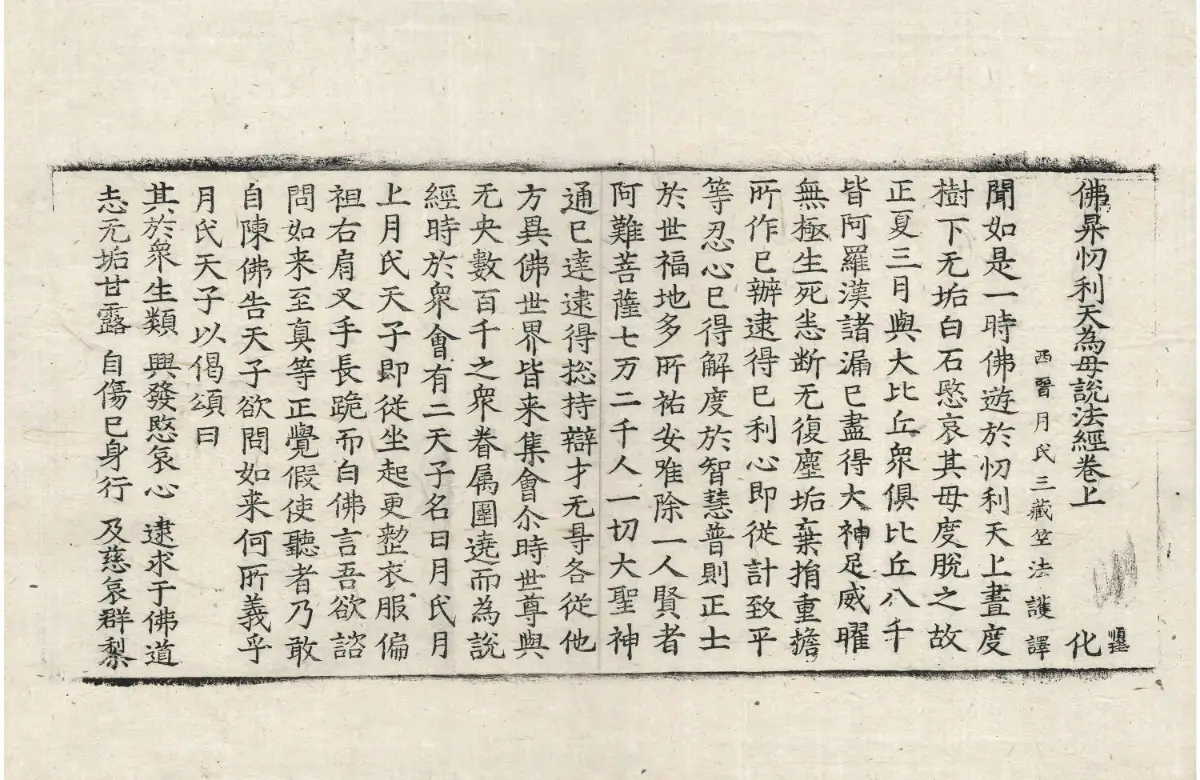 佛昇忉利天為母說法經卷上 化
西晉月氏三藏竺法護譯
聞如是一時佛遊於忉利天上晝度
樹下无垢白石愍哀其母度脫之故
正夏三月與大比丘眾俱比丘八千
皆阿羅漢諸漏已盡得大神足威曜
無極生死悉断无復塵垢棄捐重擔
所作已辦逮得已利心即從計致平
等忍心已得解度於智慧普則正士
於世福地多所祐安唯除一人賢者
阿難菩薩七万二千人一切大聖神
通已達逮得捴持辯才无㝵各從他
方異佛世界皆来集會尒時世尊與
无央數百千之眾眷属圍遶而為說
經時於眾會有二天子名曰月氏月
上月氏天子即從坐起更整衣服偏
袒右肩叉手長跪而白佛言吾欲諮
問如来至真等正覺假使聽者乃敢
自陳佛告天子欲問如来何所義乎
月氏天子以偈頌曰
其於眾生類 興發愍哀心 逮求于佛道
志无垢甘露 自傷已身行 及慈哀群梨